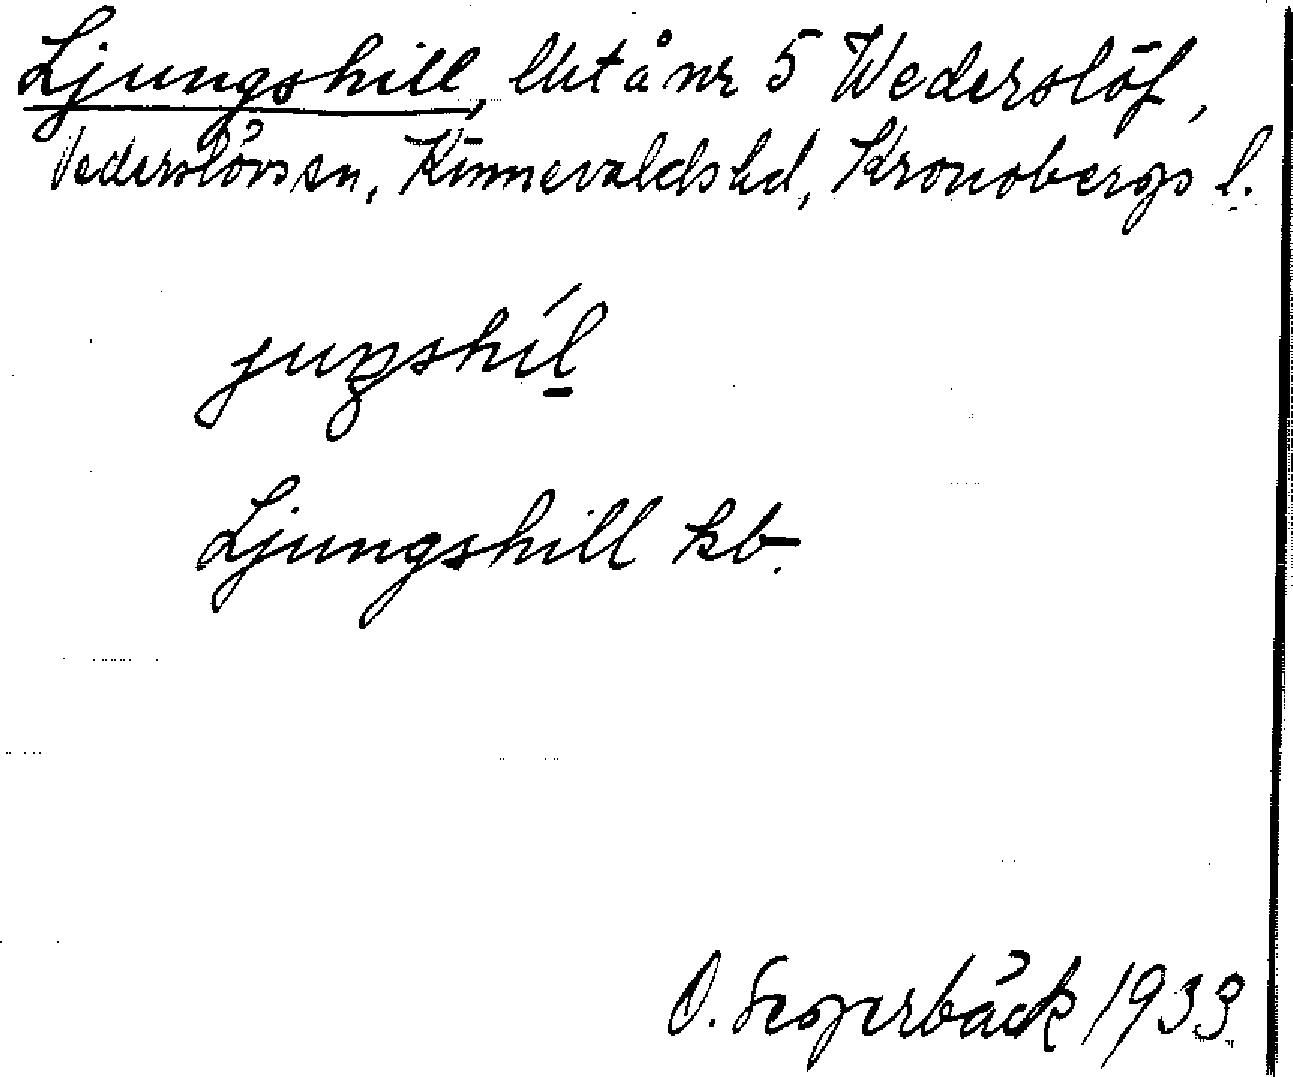 Ljungshill, lht å nr 5 Wederslöf,
Vederslövs sn, Kinnevalds hd, Kronobergs l.
juŋshíl
Ljungshill kb.
O. Segerbäck 1933